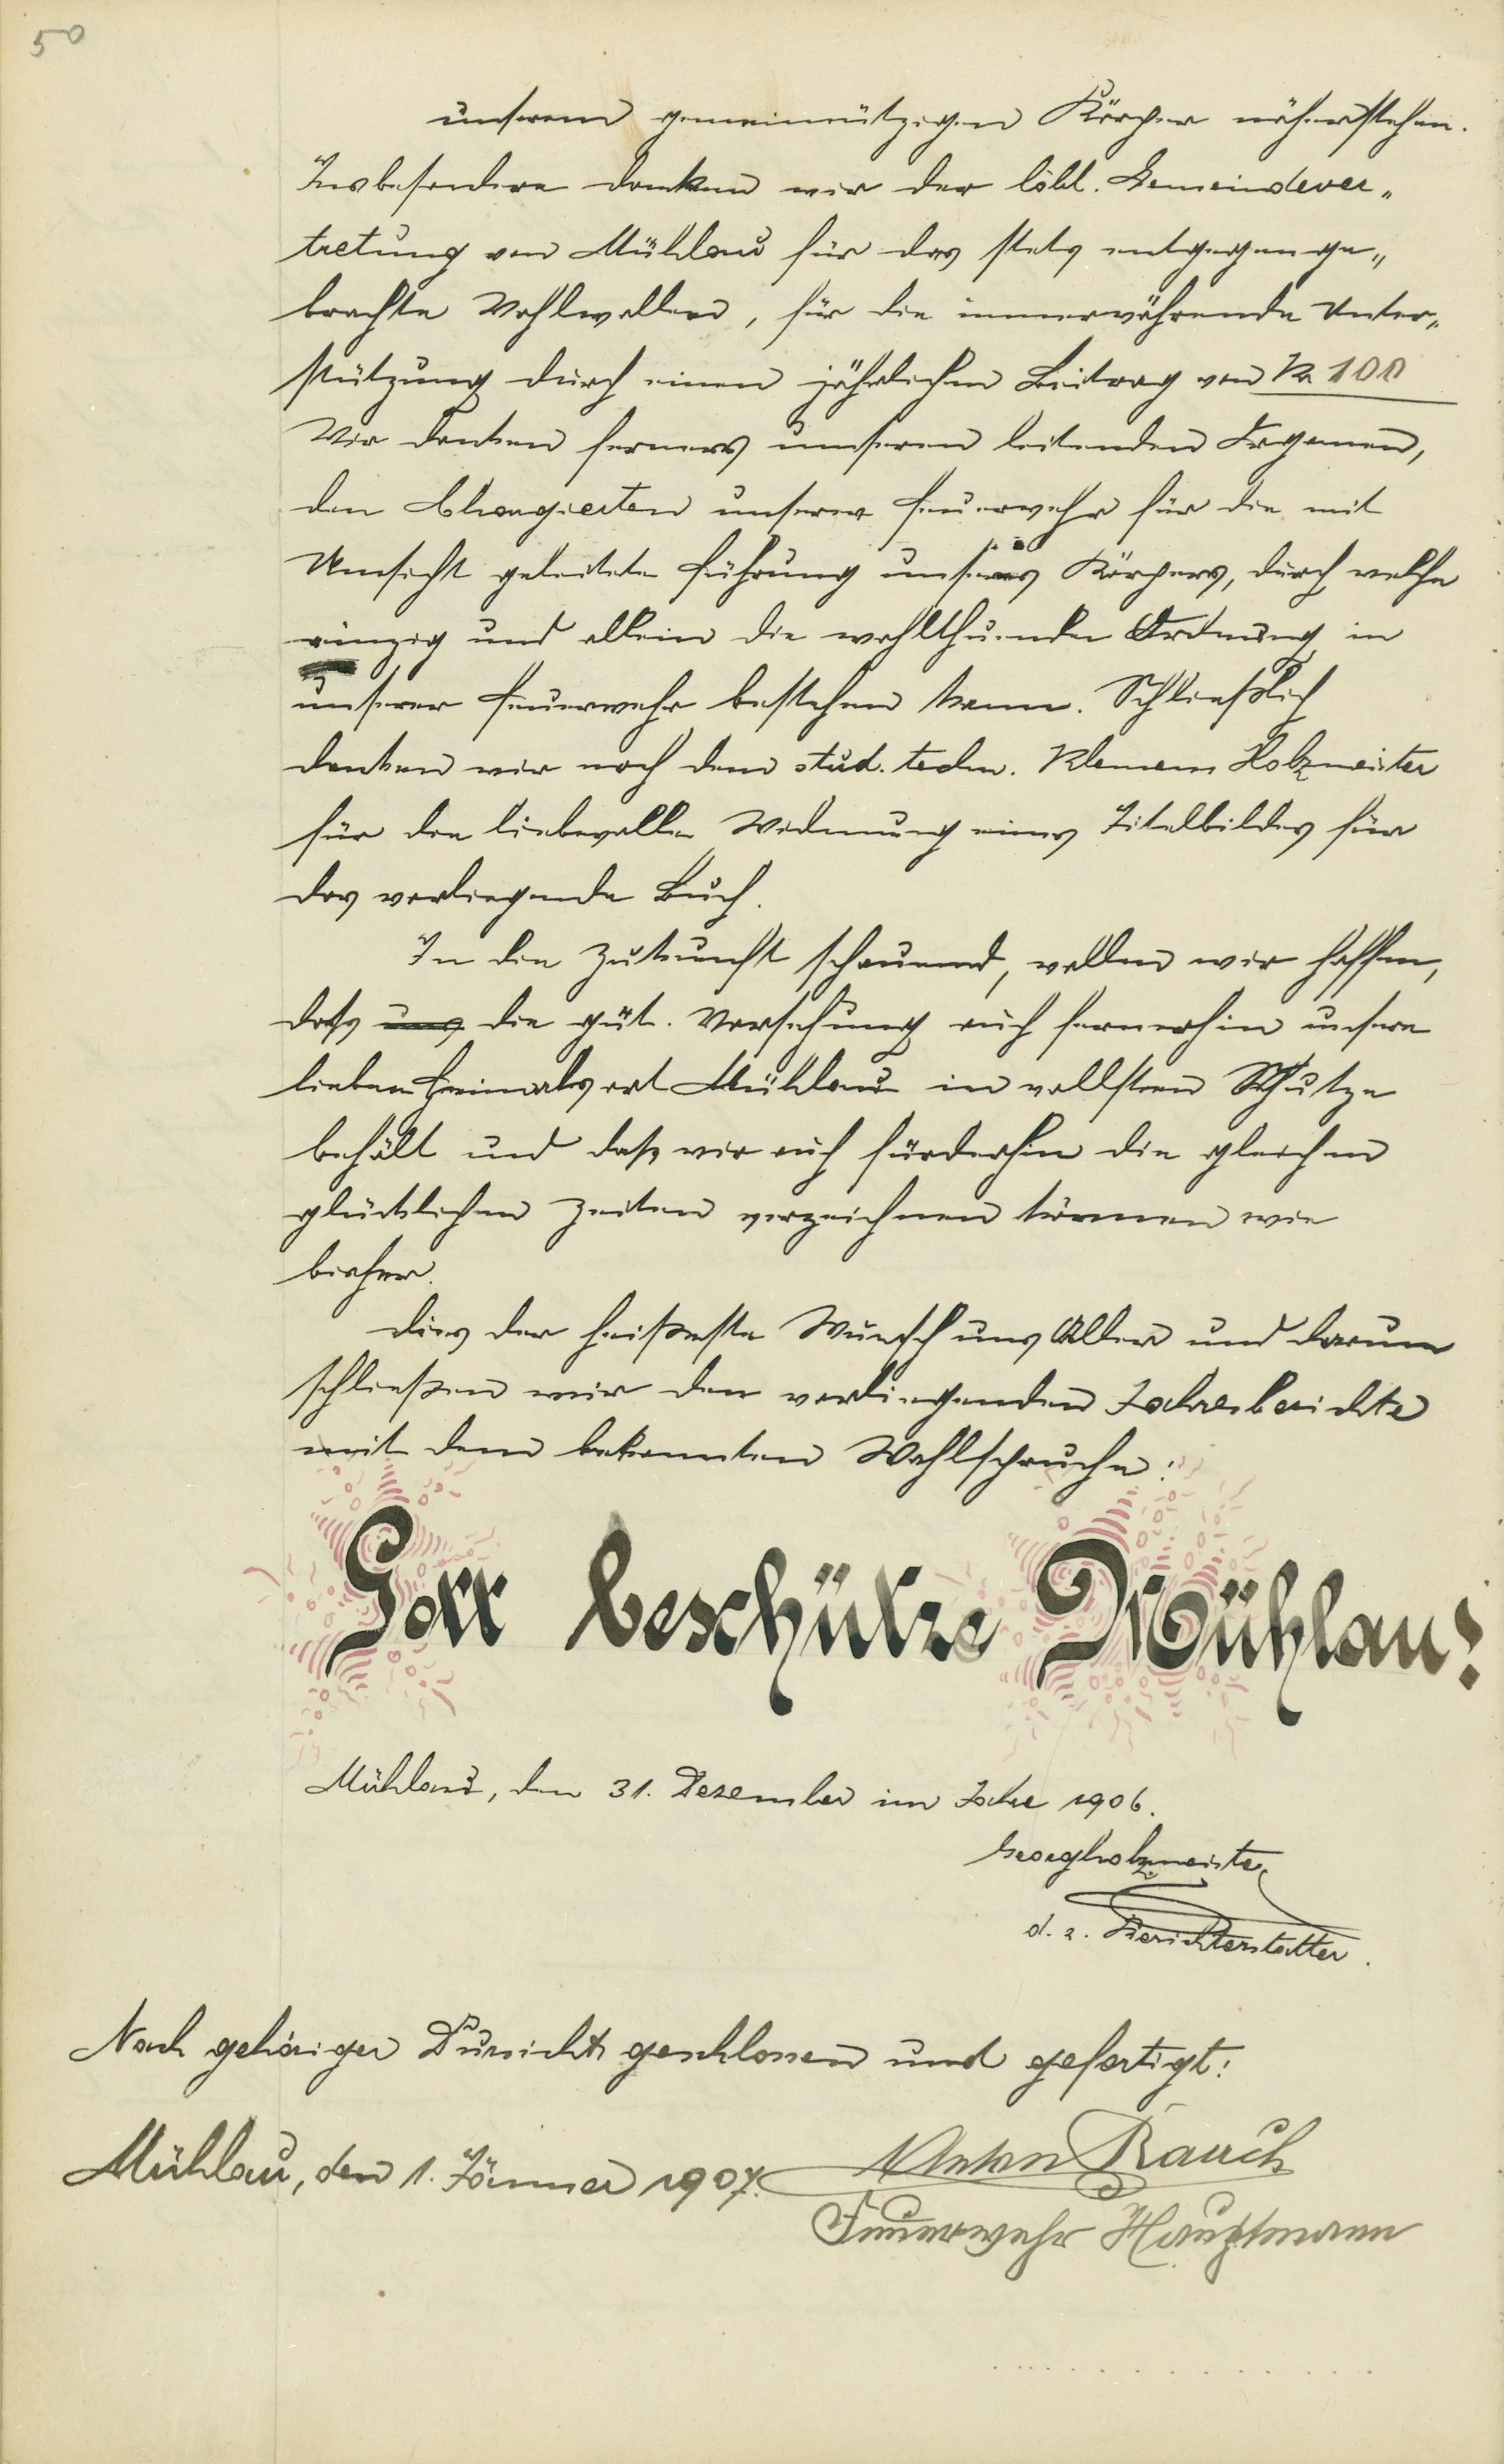 50
unserem gemeinnützigen Körper näherstehen.
Insbesondere danken wir der löbl. Gemeindever„
tretung von Mühlau für das stets entgegenge„
brachte Wohlwollen, für die immerwährende Unter„
stützung durch einen jährlichen Beitrag von Kr 100
Wir danken ferners unseren leitenden Organen,
den Chargierten unserer Feuerwehr für die mit
Umsicht geleitete Führung unseres Körpers, durch welche
einzig und allein die wohlthuende Ordnung in
unserer Feuerwehr bestehen kann. Schließlich
danken wir noch dem stud. techn. Klemens Holzmeister
für die liebevolle Widmung eines Titelbildes für
das vorliegende Buch.
In die Zukunft schauend, wollen wir hoffen,
daß uns die güt. Vorsehung auch fernerhin unsere
lieben Heimatsort Mühlau in vollsten Schutze
behält und daß wir auch fürderhin die gleichen
glücklichen Zeiten verzeichnen können wie
bisher.
Dies der heißeste Wunsch uns Aller und darum
schließen wir den vorliegenden Jahresberichte
mit dem bekannten Wahlspruche:
Gott beschütze Mühlau!
Mühlau, den 31. Dezember im Jahre 1906.
Georg Holzmeister
d. z. Berichterstatter.
Nach gehöriger Dursicht geschlossen und gefertigt:
Mühlau, den 1. Jänner 1907.
Anton Rauch
Feuerwehr Hauptmann